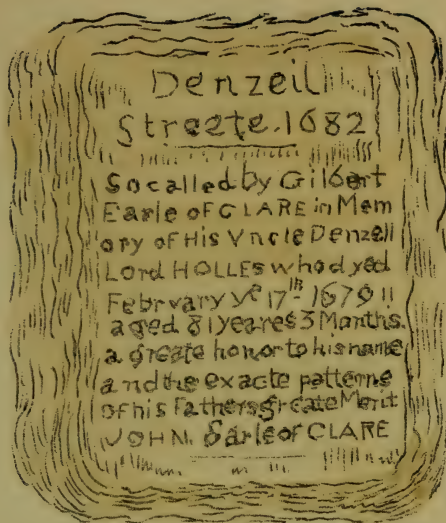 Denzeil
Streete.1682
So called by Gilbert
Earle of CLARE in Mem
ory of His Vncle Denzell
Lord HOLLES who dyed
Febrvary yᵉ 17ᵗʰ 1679
aged 81 yeares 3 Months.
a greate honor to his name
and the exacte patterne
of his Fathers greate Merit
JOHN. Earle of CLARE